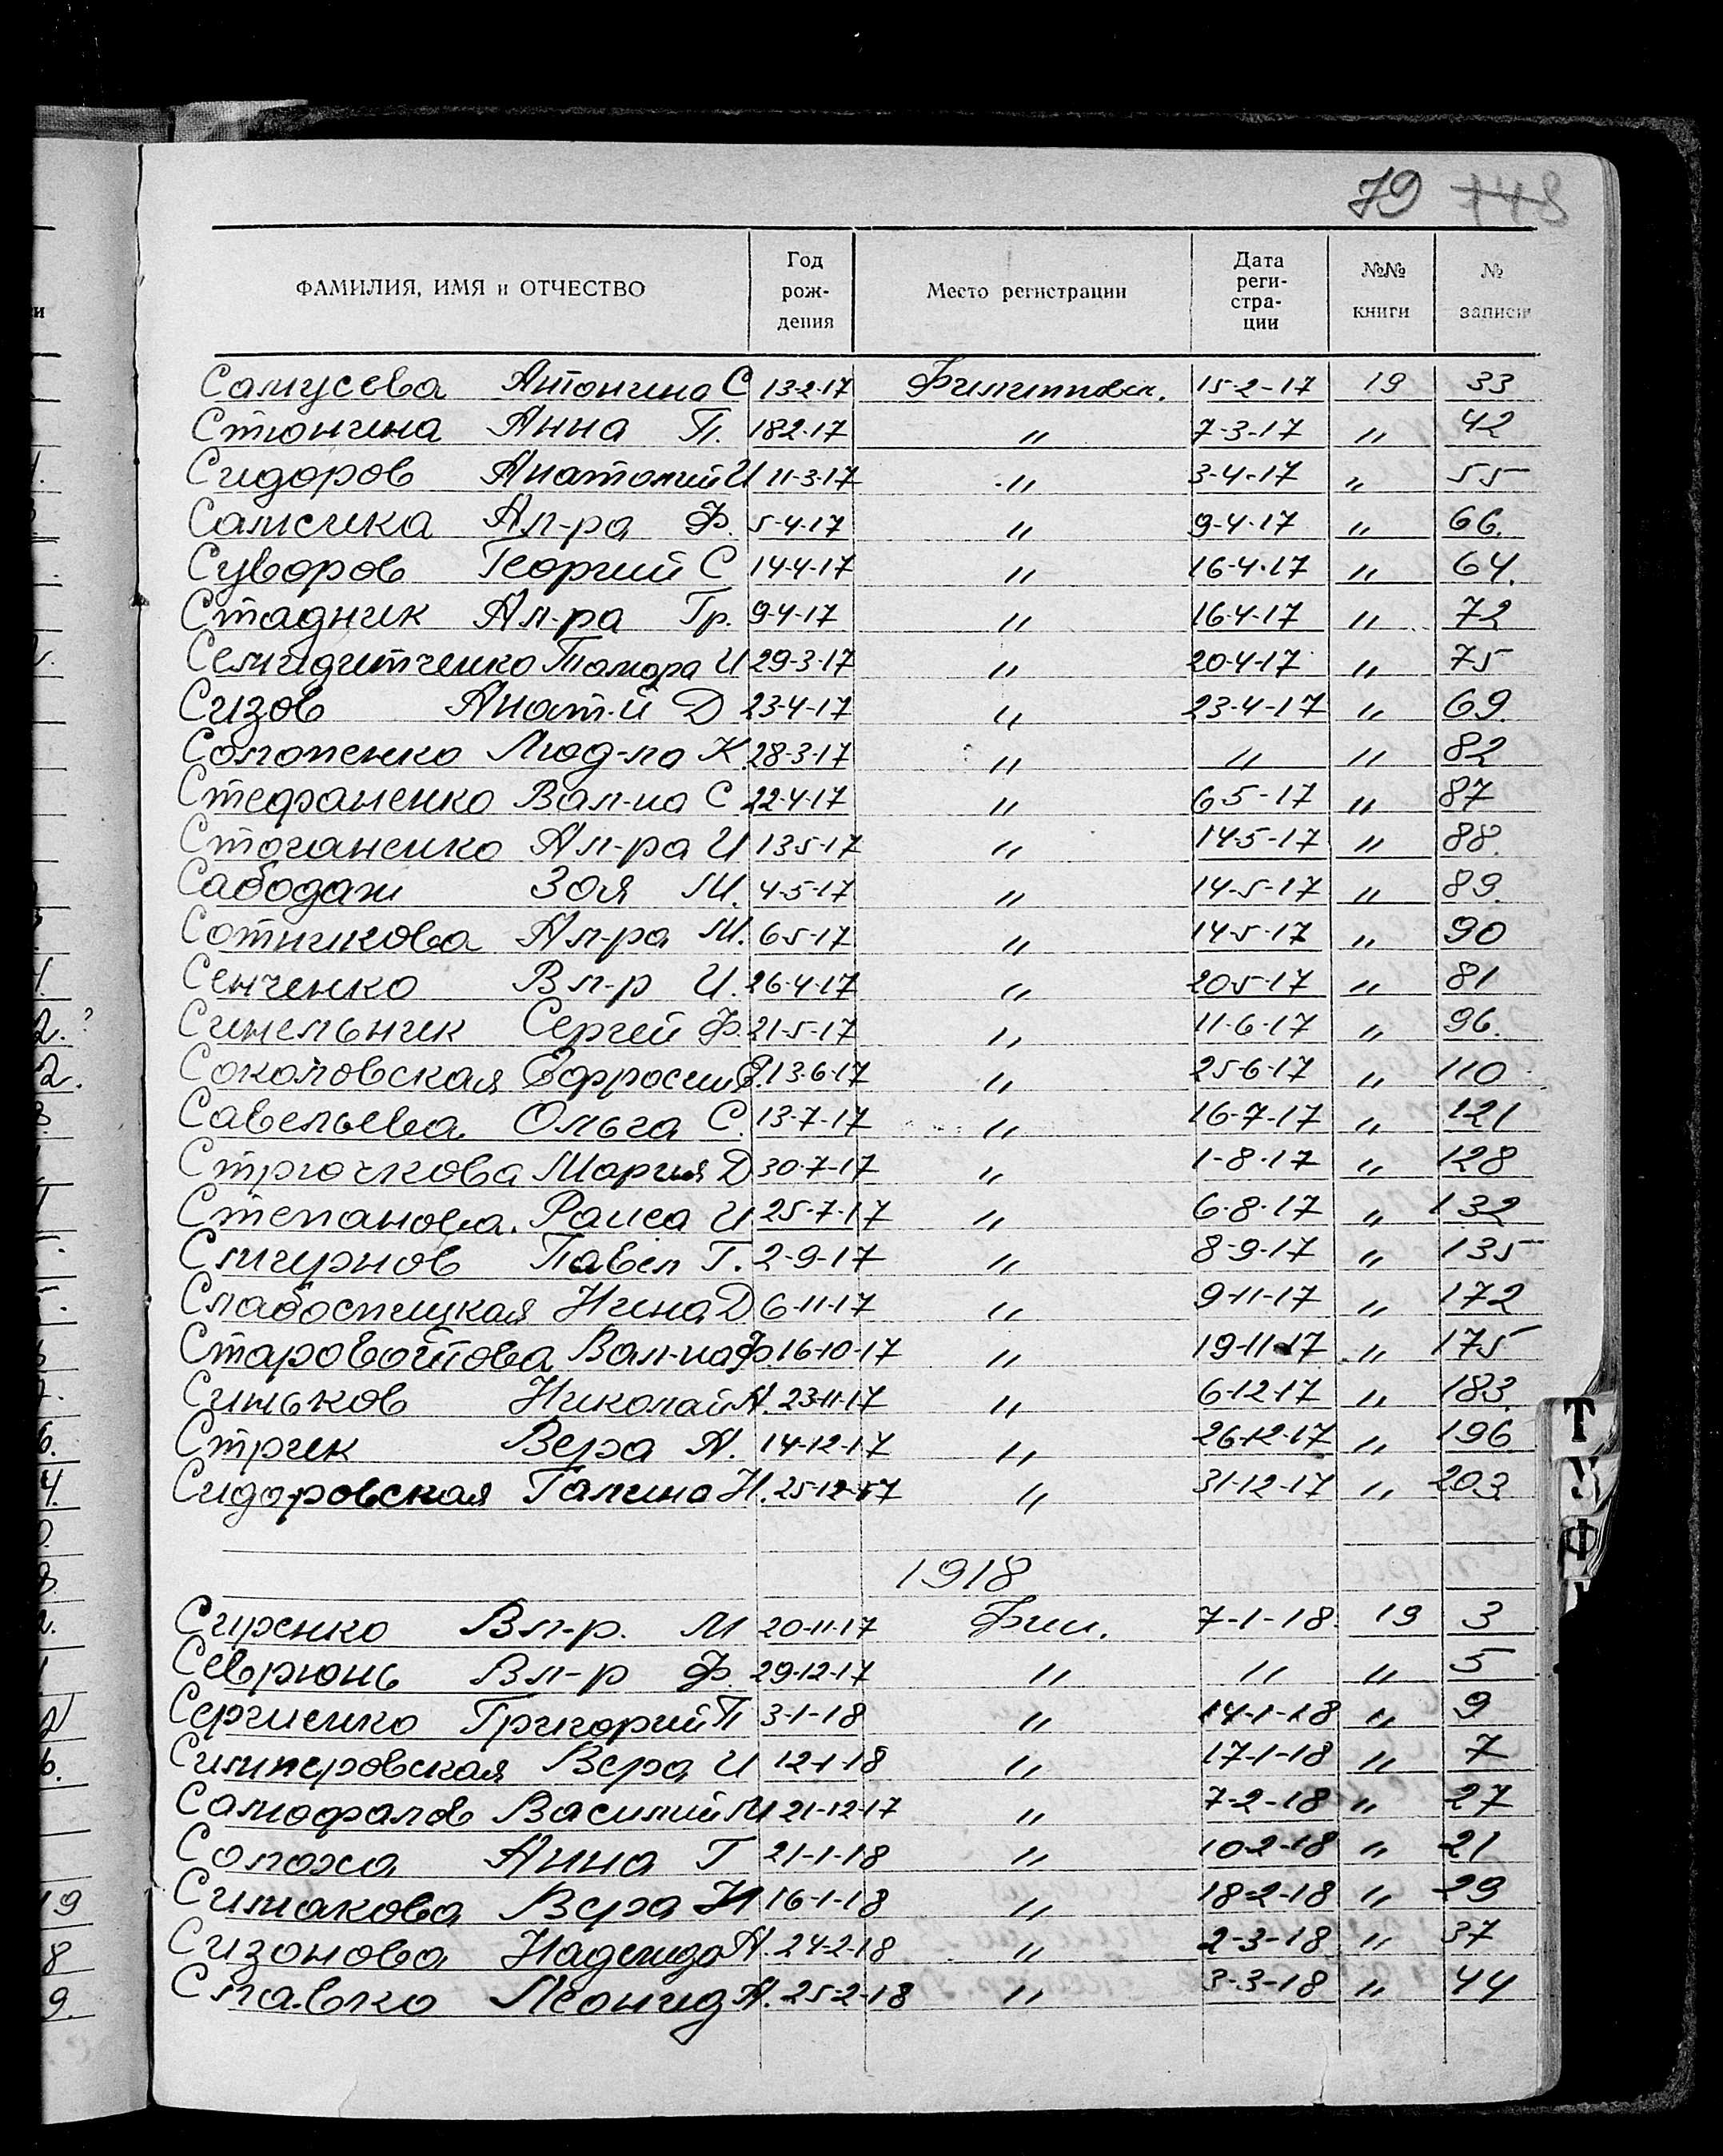 79 148
ФАМИЛИЯ, ИМЯ и ОТЧЕСТВО Год рождения Место регистрации Дата регистрации №№ книги № записи
Самусева Антонина С 13-2-17 Филипповск. 15-2-17 19 33
Стюнина Анна П. 18 2-17 " 7-3-17 " 42
Сидоров Анатолий И 11-3-17 " 3-4-17 " 55
Самсика Ал-ра Ф. 5-4-17 " 9-4-17 " 66.
Суворов Георгий С 14-4-17 " 16-4-17 " 64.
Стадник Ал-ра Гр. 9-4-17 " 16-4-17 " 72
Семидитченко Тамара И 29-3-17 " 20-4-17 " 75
Сизов Анат-й Д 23-4-17 " 23-4-17 " 69.
Солопенко Люд-ла К. 28-3-17 " " " 82
Стефаненко Вал-на С 22-4-17 " 6 5-17 " 87
Стоганенко Ал-ра И 13 5-17 " 14-5-17 " 88.
Сабодаш Зоя М. 4-5-17 " 14-5-17 " 89.
Сотникова Ал-ра М. 6 5-17 " 14-5-17 " 90
Сенченко Вл-р И. 26-4-17 " 20 5-17 " 81
Синельник Сергей Ф. 21-5-17 " 11-6-17 " 96.
Соколовская Ефросин 13-6-17 " 25-6-17 " 110
Савельева Ольга С. 13-7-17 " 16-7-17 " 121
Стрючкова Мария Д 30-7-17 " 1-8-17 " 128
Степанова. Раиса И 25-7-17 " 6-8-17 " 132
Смчурнов Павел Г. 2-9-17 " 8-9-17 " 135
Слабоспицкая Нина Д 6-11-17 " 9-11-17 " 172
Старовойтова Вал-на Ф 16-10-17 " 19-11-17 " 175
Синьков Николай А. 23-11-17 " 6-12-17 " 183.
Стрик Вера А. 14-12-17 " 26-12-17 " 196
Сидоровская Галина Н. 25-12-17 " 31-12-17 " 203
1918
Сиренко Вл-р. М 20-11-17 Фил. 7-1-18 19 3
Севрюнь Вл-р Ф. 29-12-17 " " " 5
Сергиенко Григорий П 3-1-18 " 14-1-18 " 9
Симперовская Вера И 12-1-18 " 17-1-18 " 7
Самофалов Василий М 21-12-17 " 7-2-18 " 27
Солоха Анна Г 21-1-18 " 10-2-18 " 21
Симакова Вера Н 16-1-18 " 18-2-18 " 29
Сизонова Надежда А. 24-2-18 " 2-3-18 " 37
Славко Леонид А. 25-2-18 " 3-3-18 " 44
Т
У
Ф